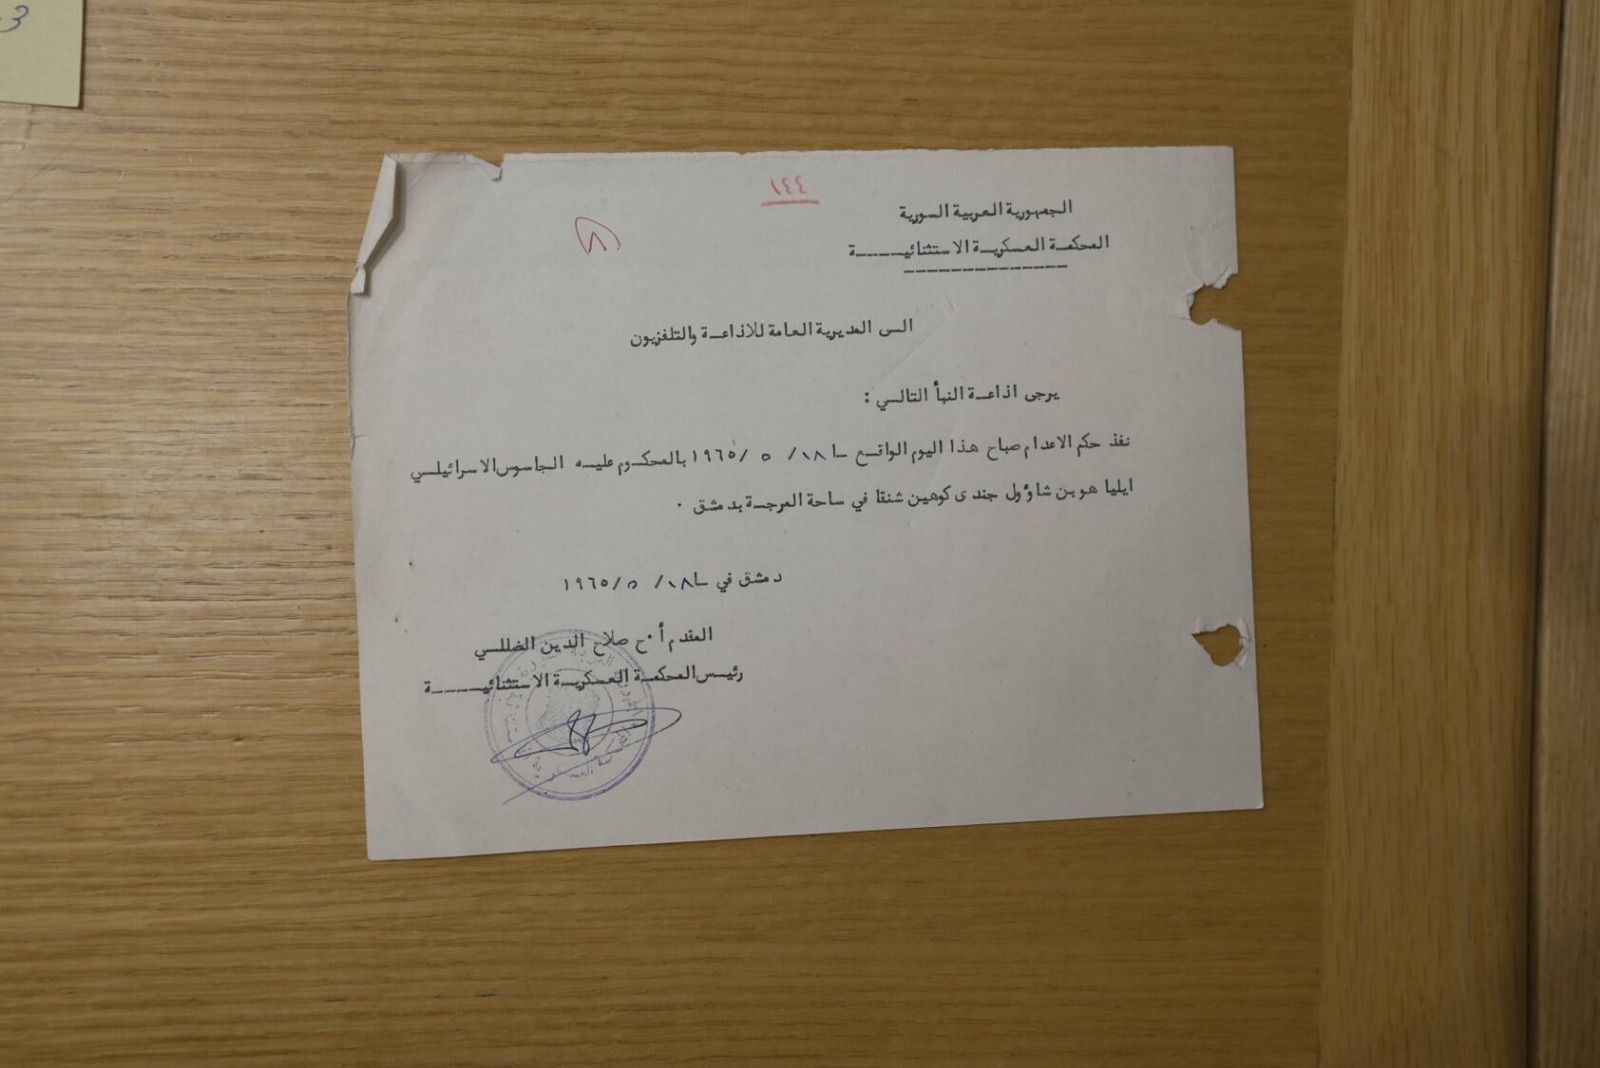 3
١٤٤
الجمهورية العربية السورية
المحكمة العسكرية الاستثنائيـــــة
الـى المديرية العامة للاذاعـة والتلفزيون
يرجى اذاعـة النبأ التالـي :
نفذ حكم الاعدام صباح هذا اليوم الواقـع ـا ١٨/ ٥ /١٩٦٥ بالمحكـوم عليـه الجاسوس الاسرائيلـي
ايليا هو بن شاؤول جندى كوهين شنقا في ساحة المرجـة بدمشق ٠
دمشق في ـا ١٨/ ٥ /١٩٦٥
المقدم أ ٠ح صلاح الدين الضللـي
رئيـس المحكمـة العسكريـة الاستثنائيـــــة